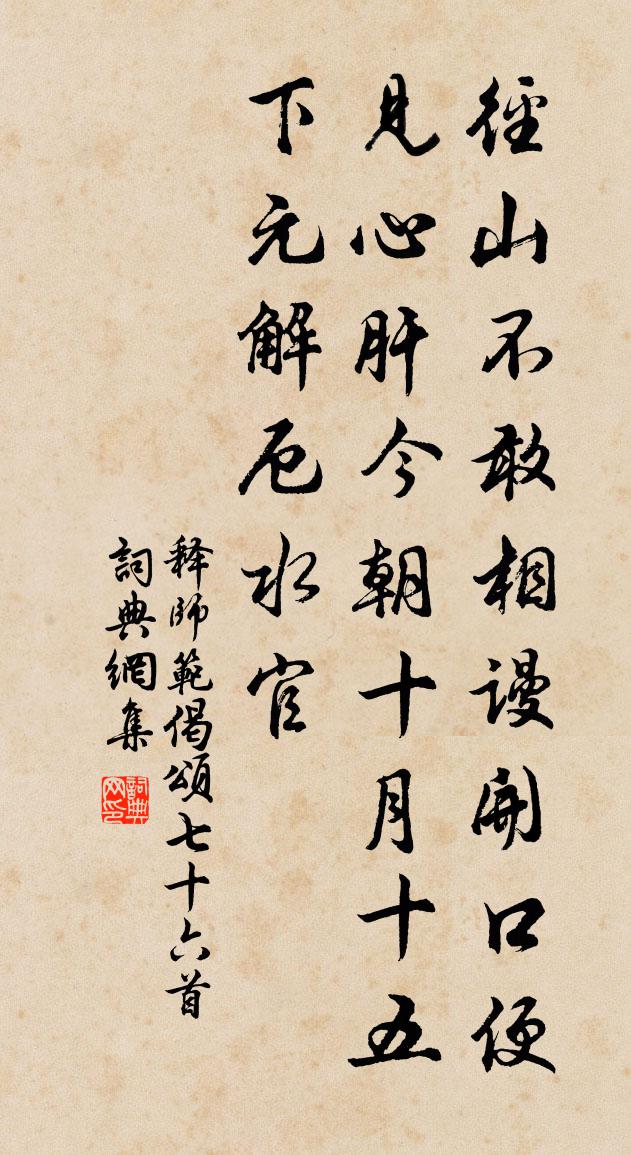 徑山不敢相謾開口便
見心肝今朝十月十五
下元解厄水官
释師範偈頌七十六首
詞典網集
詞典网印